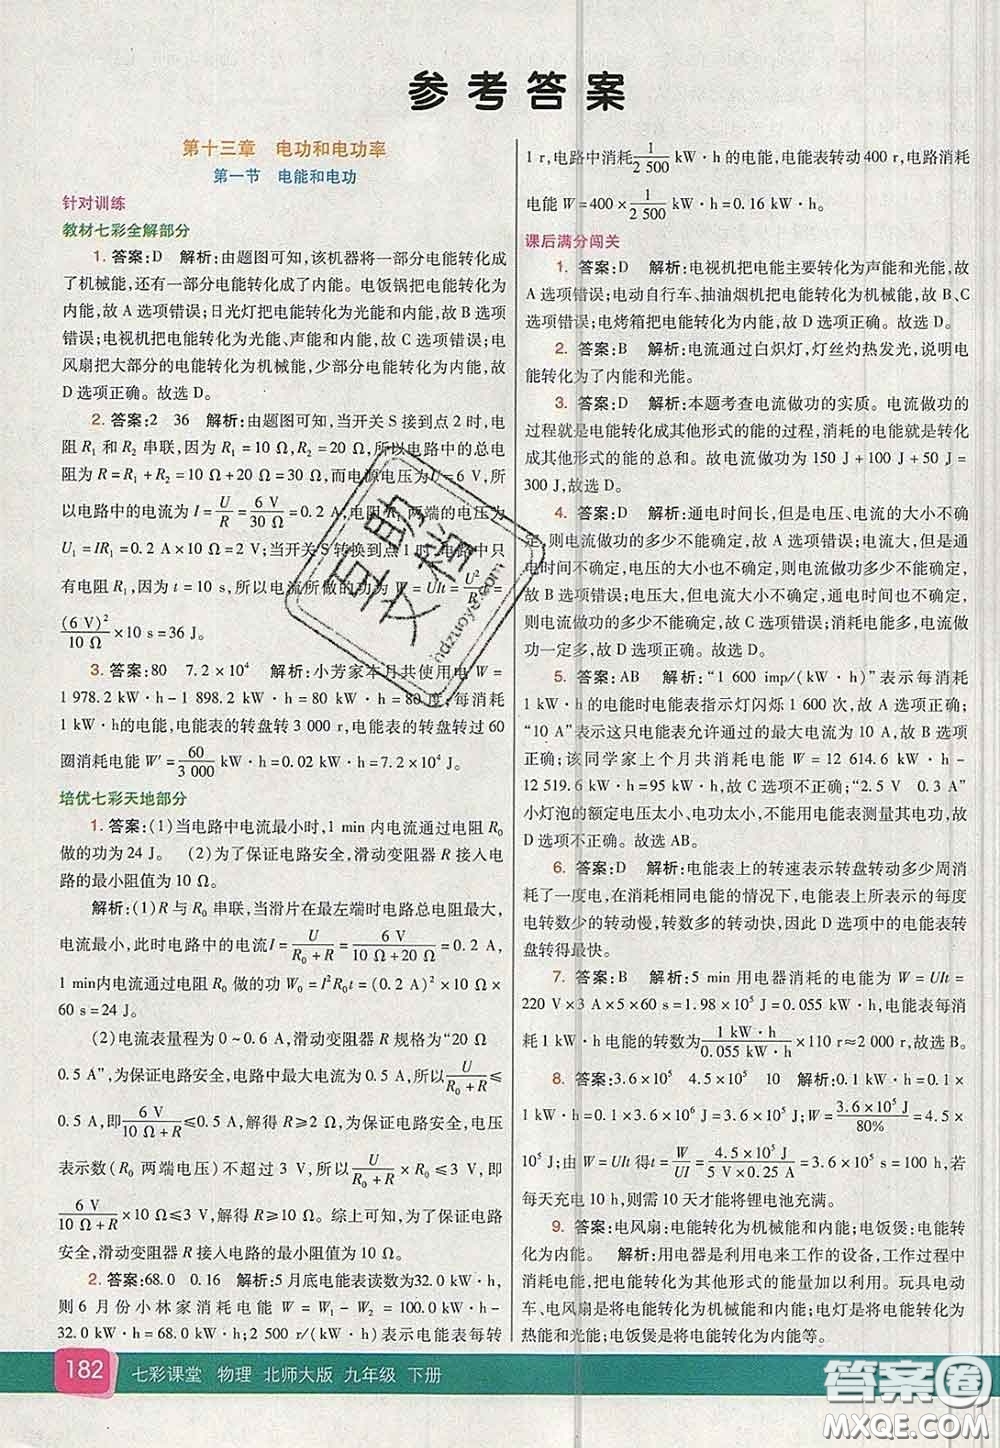 参考答案
第十三章　电功和电功率
第一节　电能和电功
针对训练
教材七彩全解部分
1. 答案:D　解析:由题图可知,该机器将一部分电能转化成
了机械能,还有一部分电能转化成了内能。电饭锅把电能转化
成内能,故 A 选项错误;日光灯把电能转化为光能和内能,故 B 选项
错误;电视机把电能转化为光能、声能和内能,故 C 选项错误;电
风扇把大部分的电能转化为机械能,少部分电能转化为内能,故
D 选项正确。故选 D。
2. 答案:2　36　解析:由题图可知,当开关 S 接到点 2 时,电
阻 R₁ 和 R₂ 串联,因为 R₁=10 Ω,R₂=20 Ω,所以电路中的总电
阻为 R=R₁+R₂=10 Ω+20 Ω=30 Ω,而电源电压为 U=6 V,所
以电路中的电流为 I=U/R=6 V/30 Ω=0.2 A;电阻 R₁ 两端的电压为
U₁=IR₁=0.2 A×10 Ω=2 V;当开关 S 转换到点 1 时,电路中只
有电阻 R₁,因为 t=10 s,所以电流所做的功为 W=UIt=U²/R₁ t=
(6 V)²/10 Ω×10 s=36 J。
3. 答案:80　7.2×10⁴　解析:小芳家本月共使用电 W=
1 978.2 kW·h-1 898.2 kW·h=80 kW·h=80 度;每消耗
1 kW·h的电能,电能表的转盘转 3 000 r,电能表的转盘转过 60
圈消耗电能 W′=60/3 000 kW·h=0.02 kW·h=7.2×10⁴ J。
培优七彩天地部分
1. 答案:(1)当电路中电流最小时,1 min 内电流通过电阻 R₀
做的功为 24 J。　(2)为了保证电路安全,滑动变阻器 R 接入电
路的最小阻值为 10 Ω。
解析:(1)R 与 R₀ 串联,当滑片在最左端时电路总电阻最大,
电流最小,此时电路中的电流I=U/(R₀+R)=6 V/(10 Ω+20 Ω)=0.2 A,
1 min内电流通过电阻 R₀ 做的功 W₀=I²R₀t=(0.2 A)²×10 Ω×
60 s=24 J。
(2)电流表量程为 0~0.6 A,滑动变阻器 R 规格为“20 Ω
0.5 A”,为保证电路安全,电路中最大电流为 0.5 A,所以U/(R₀+R)≤
0.5 A,即6 V/(10 Ω+R)≤0.5 A,解得 R≥2 Ω。为保证电路安全,电压
表示数(R₀ 两端电压)不超过 3 V,所以U/(R₀+R)×10 Ω≤3 V,即
6 V/(10 Ω+R)×10 Ω≤3 V,解得 R≥10 Ω。综上可知,为了保证电路
安全,滑动变阻器 R 接入电路的最小阻值为 10 Ω。
2. 答案:68.0　0.16　解析:5 月底电能表读数为32.0 kW·h,
则 6 月份小林家消耗电能 W=W₁-W₂=100.0 kW·h-
32.0 kW·h=68.0 kW·h;2 500 r/(kW·h)表示电能表每转
1 r,电路中消耗1/2 500 kW·h 的电能,电能表转动 400 r,电路消耗
电能 W=400×1/2 500 kW·h=0.16 kW·h。
课后满分闯关
1. 答案:D　解析:电视机把电能主要转化为声能和光能,故
A 选项错误;电动自行车、抽油烟机把电能转化为机械能,故 B、C
选项错误;电烤箱把电能转化为内能,故 D 选项正确。故选 D。
2. 答案:B　解析:电流通过白炽灯,灯丝灼热发光,说明电
能转化为了内能和光能。
3. 答案:D　解析:本题考查电流做功的实质。电流做功的
过程就是电能转化成其他形式的能的过程,消耗的电能就是转化
成其他形式的能的总和。故电流做功为 150 J+100 J+50 J=
300 J,故选 D。
4. 答案:D　解析:通电时间长,但是电压、电流的大小不确
定,则电流做功的多少不能确定,故 A 选项错误;电流大,但是通
电时间、电压的大小也不确定,则电流做功多少不能确定,故 B
选项错误;电压大,但是电流、通电时间的大小也不确定,则电流
做功多少不能确定,故 C 选项错误;消耗电能多,则电流
做功一定多,故 D 选项正确。
5. 答案:AB　解析:“1 600 imp/(kW·h)”表示每消耗
1 kW·h 的电能时电能表指示灯闪烁 1 600 次,故 A 选项正确;
“10 A”表示这只电能表允许通过的最大电流为 10 A,故 B 选项
正确;该同学家上个月共消耗电能为 W=12 614.6 kW·h-
12 519.6 kW·h=95 kW·h,故 C 选项不正确;“2.5 V　0.3 A”
小灯泡的额定电压太小、电功太小,不能用电能表测量其电功,故
D 选项不正确。故选 AB。
6. 答案:D　解析:电能表上的转速表示转盘转动多少周消
耗了一度电,在消耗相同电能的情况下,电能表所表示的每度
电转数少的转动慢,转数多的转动快,因此 D 选项中的电能表转
盘转得最快。
7. 答案:B　解析:5 min 用电器消耗的电能为 W=UIt=
220 V×3 A×5×60 s=1.98×10⁵ J=0.055 kW·h,电能表每消
耗1 kW·h 电能的转数为1 kW·h/0.055 kW·h×110 r≈2 000 r,故选 B。
8. 答案:3.6×10⁵　4.5×10⁵　10　解析:0.1 kW·h=0.1×
1 kW·h=0.1×3.6×10⁶ J=3.6×10⁵ J;W=3.6×10⁵ J/80%=4.5×
10⁵ J;由 W=UIt 得t=W/UI=4.5×10⁵ J/(5 V×0.25 A)=3.6×10⁵ s=100 h,若
每天充电 10 h,则需 10 天才能将锂电池充满。
9. 答案:电风扇:电能转化为机械能和内能;电饭煲:电能转
化为内能。　解析:用电器是利用电来工作的设备,工作过程中
消耗电能,把电能转化为其他形式的能量加以利用。玩具电动
车、电风扇是将电能转化为机械能和内能;电灯是将电能转化为
光能和内能;电饭煲是将电能转化为内能等。
182　七彩课堂　物理　北师大版　九年级　下册
早助
文档
ndzuoye.com
答案圈
MXQE.COM